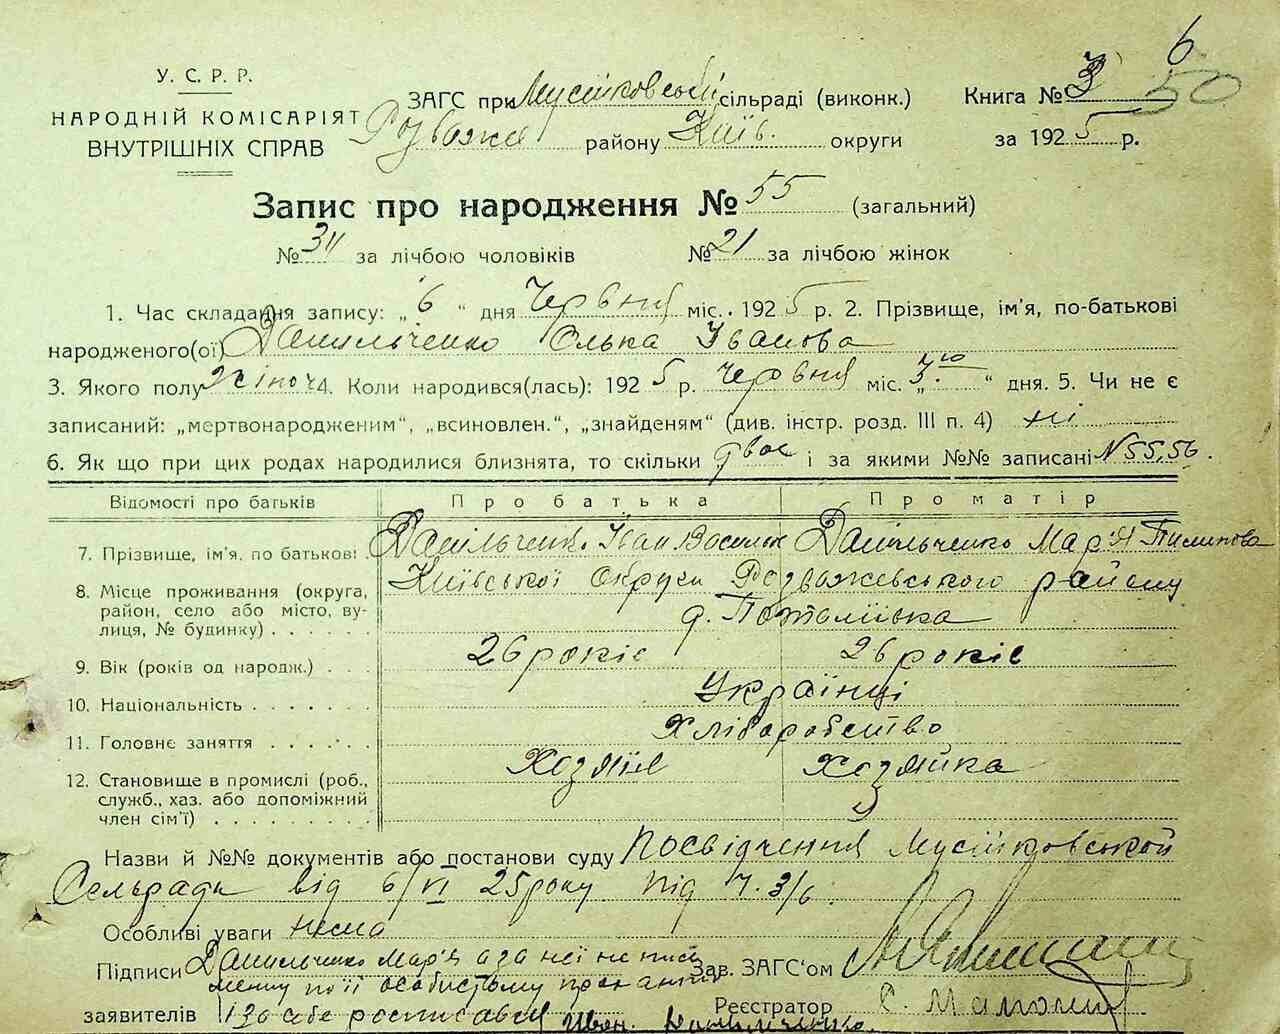 6
50
У. С. Р. Р.
НАРОДНІЙ КОМІСАРІЯТ
ВНУТРІШНІХ СПРАВ
ЗАГС при Мусійковській сільраді (виконк.)
Розваж району Київ. округи
Книга № 3
за 1925 р.
Запис про народження № 55 (загальний)
№ 34 за лічбою чоловіків № 21 за лічбою жінок
1. Час складання запису: „6“ дня Червня міс. 1925 р. 2. Прізвище, ім'я, по-батькові
народженого(ої) Данильченко Олька Іванова
3. Якого полу жіноч 4. Коли народився(лась): 1925 р. Червня міс. „3го“ дня. 5. Чи не є
записаний: „мертвонародженим“, „всиновлен.“, „знайденям“ (див. інстр. розд. III п. 4) ні
6. Як що при цих родах народилися близнята, то скільки двое і за якими №№ записані N 55,56.
Відомості про батьків Про батька Про матір
7. Прізвище, ім'я, по батькові: Данільченко Іван Василів Данільченко Мар'я Пилипова
8. Місце проживання (округа, район, село або місто, вулиця, № будинку) Київської Округи Розважевського району
д. Потоліївка
9. Вік (років од народж.) 26 років 26 років
10. Національність Українці
11. Головне заняття Хліборобство
12. Становище в промислі (роб., служб., хаз. або допоміжний член сім'ї) Хозяїн Хозяйка
Назви й №№ документів або постанови суду Посвідчення Мусійковської
Сельради від 6/VI 25 року під ч. 3/6
Особливі уваги нема
Підписи Данильченко Мар'я а за неї непись
менну по її особистому проханню
заявителів і за себе росписався Іван Данильченко.
Зав. ЗАГС'ом
Реєстратор С.